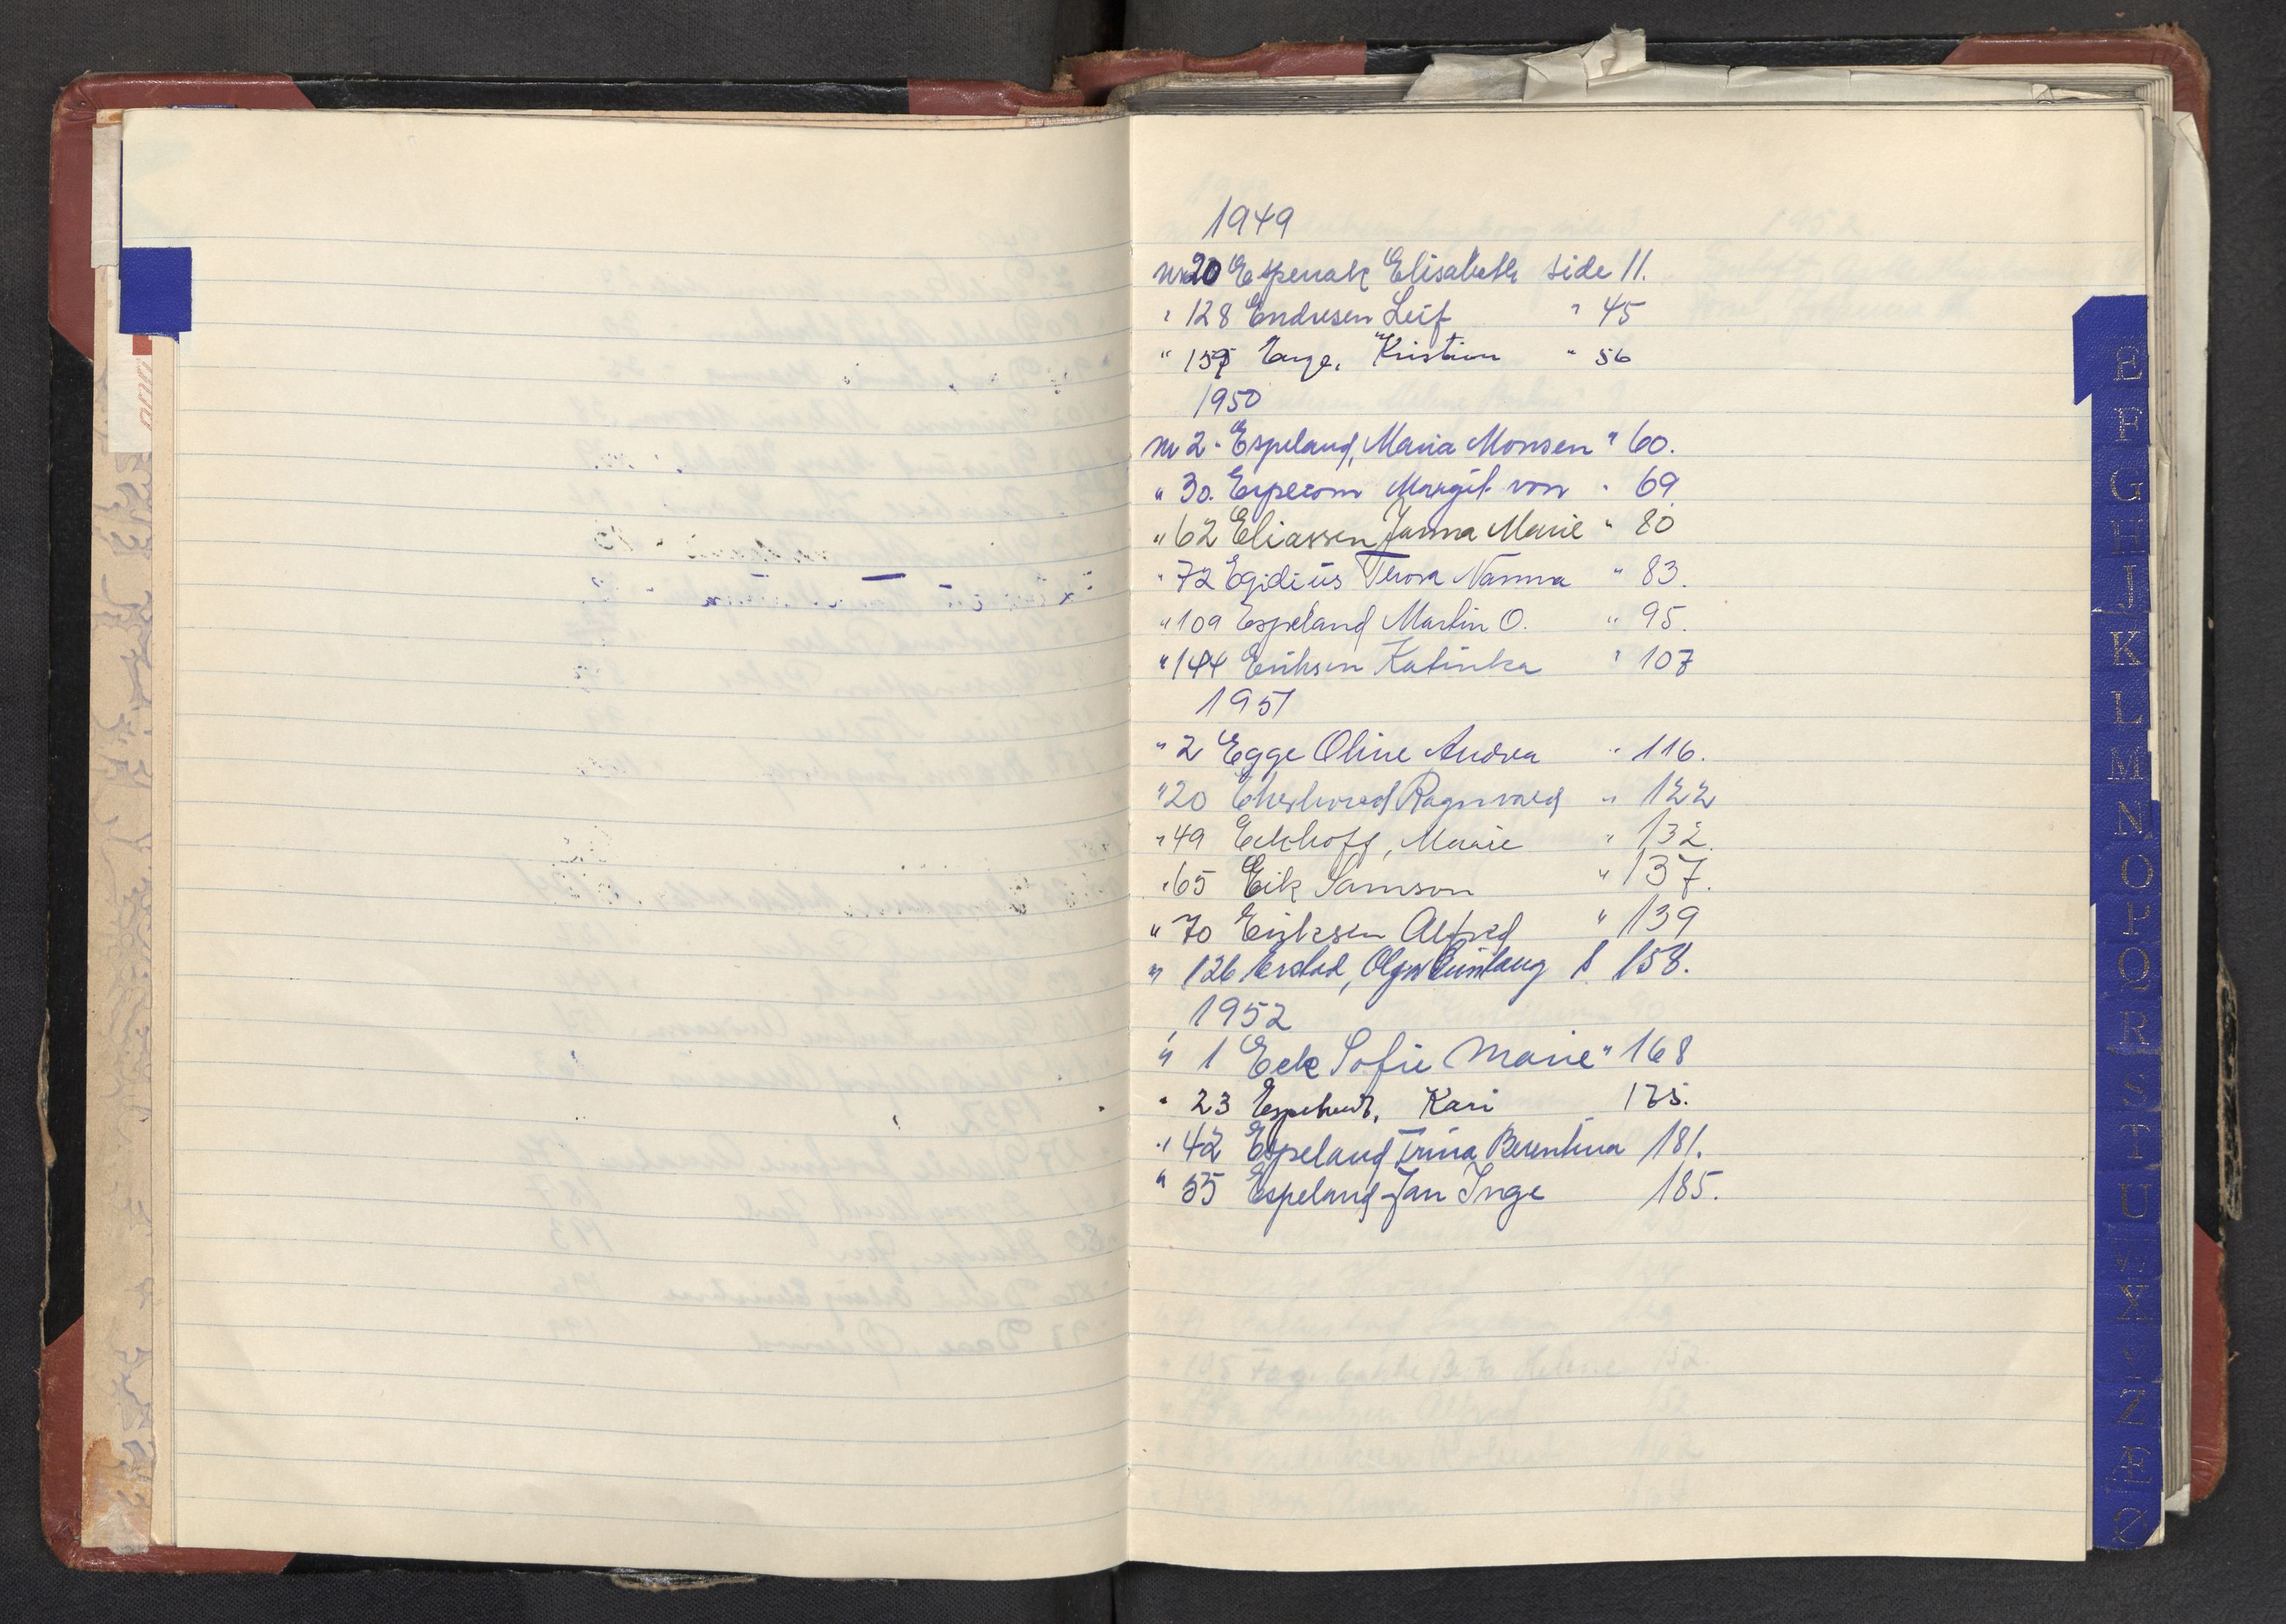 1949
nr 20 Espenak Elisabeth side 11.
" 128 Endresen Leif " 45
" 157 Enge, Kristian " 56
1950
nr 2 - Espeland, Maria Monsen " 60.
" 30. Margit von " 69
" 62 Eliassen Janna Marie " 80
" 72 Egidius Nanna " 83.
" 109 Espeland Martin O. " 95.
" 144 Eriksen Katinka " 107
1951
" 2 Egge Oline Andrea " 116.
" 20 Ragnvald " 122
" 49 Eckhoff, Marie " 132.
" 65 Eik Samson " 137.
" 70 Eriksen Alfred " 139
" 126 Erstad, Olga 158.
1952
" 1 Eek Sofie Marie " 168
" 23 Kari 175.
" 42 Espeland Trina Berentina 181.
" 55 Espeland Jan Inge 185.
E
F
G
H
I J
K
L
M
N
O
P
Q
R
S
T
U
V
X
Y
Z
Æ
Ø